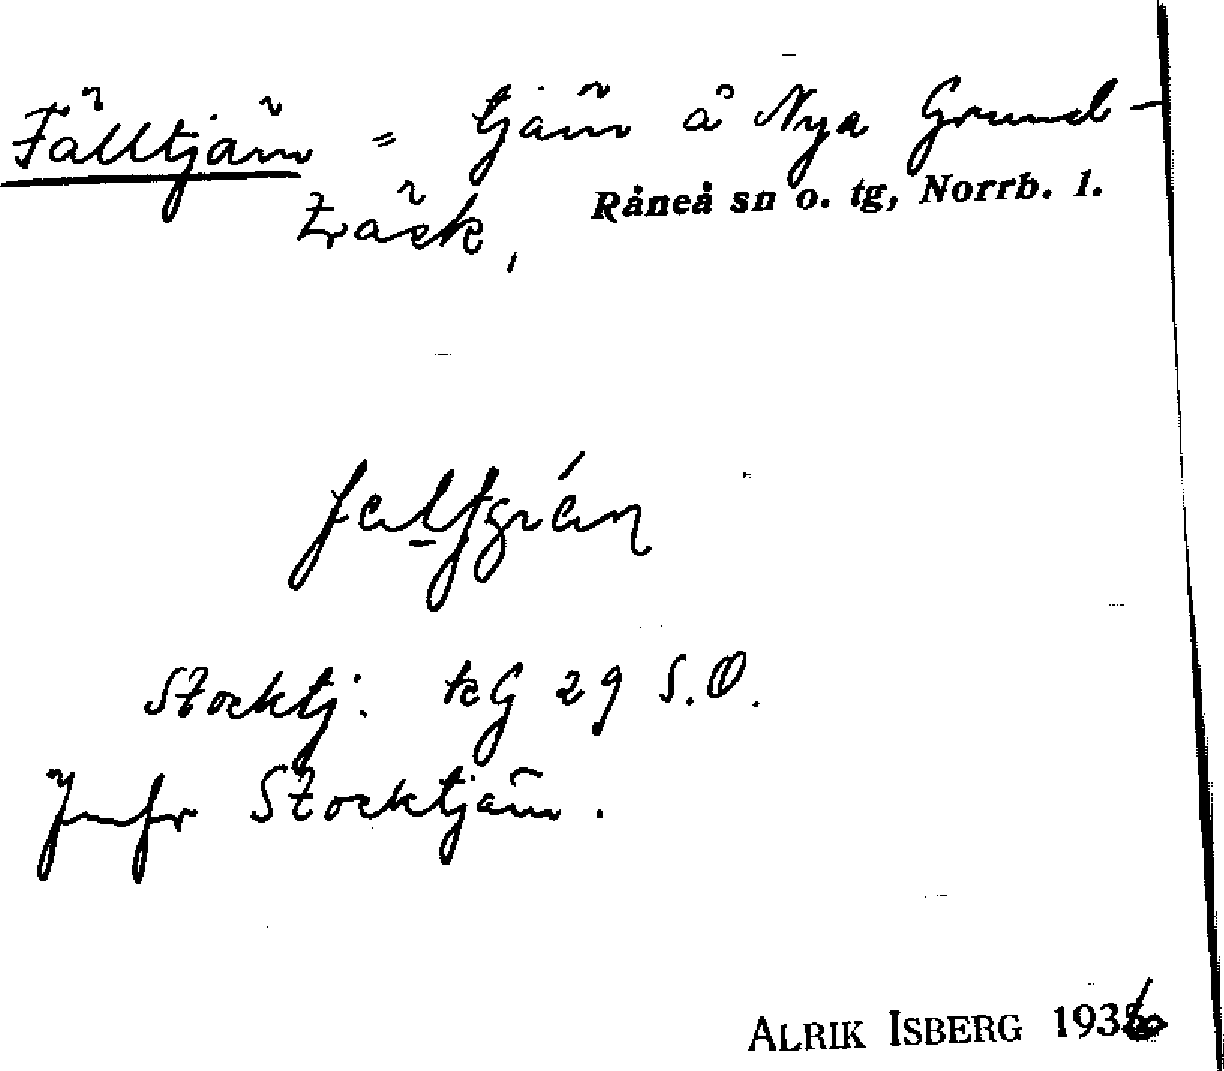 Fälltjärn = tjärn å Nya Grund-
träsk, Råneå sn o. tg, Norrb. l.
Stocktj: kG 29 S.O.
Jmfr Stocktjärn.
ALRIK ISBERG 1936